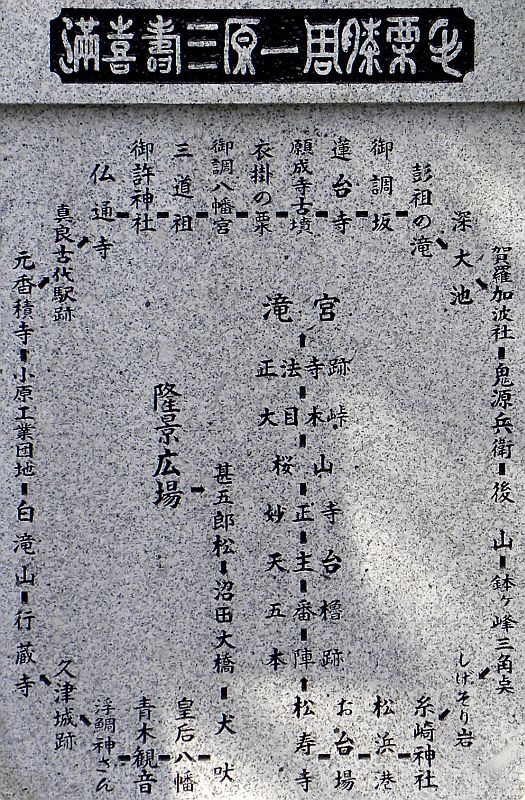 滿喜壽三原一周膝栗毛
滝宮
正法寺跡
大目木峠
桜山
妙正寺
天主台
五番櫓
本陣跡
松寿寺
お台場
松浜港
糸崎神社
しげそり岩
鉢ヶ峰三角奌
後山
鬼源兵衛
賀羅加波社
深大池
彭祖の滝
御調坂
蓮台寺
願成寺古墳
衣掛の栗
御調八幡宮
三道祖
御許神社
仏通寺
真良古代駅跡
元香積寺
小原工業団地
白滝山
行蔵寺
久津城跡
浮鯛神さん
青木観音
皇后八幡
犬吠
沼田大橋
甚五郎松
隆景広場